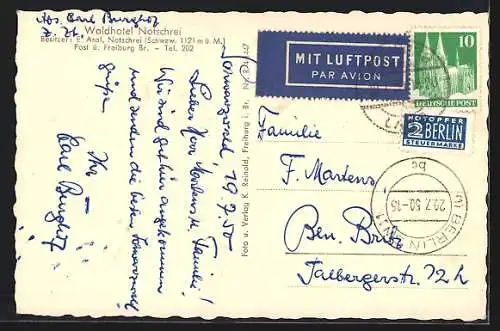 Abs. Carl Burghof
z. Zt.
Waldhotel Notschrei
Besitzer: E. Asal, Notschrei (Schwzw. 1121 m ü. M.)
Post ü. Freiburg Br. - Tel. 202
19.7.50
Lieber Herr Martens u. Familie!
Wir sind gut hier angekommen
und senden die besten
Grüße
Ihr
Carl Burghof
Foto u. Verlag K. Reinold, Freiburg i. Br.
MIT LUFTPOST
PAR AVION
10
DEUTSCHE POST
NOTOPFER
2 BERLIN
STEUERMARKE
BERLIN
20.7.50-15
bc
Familie
F. Martens
Talbergerstr. 72 h